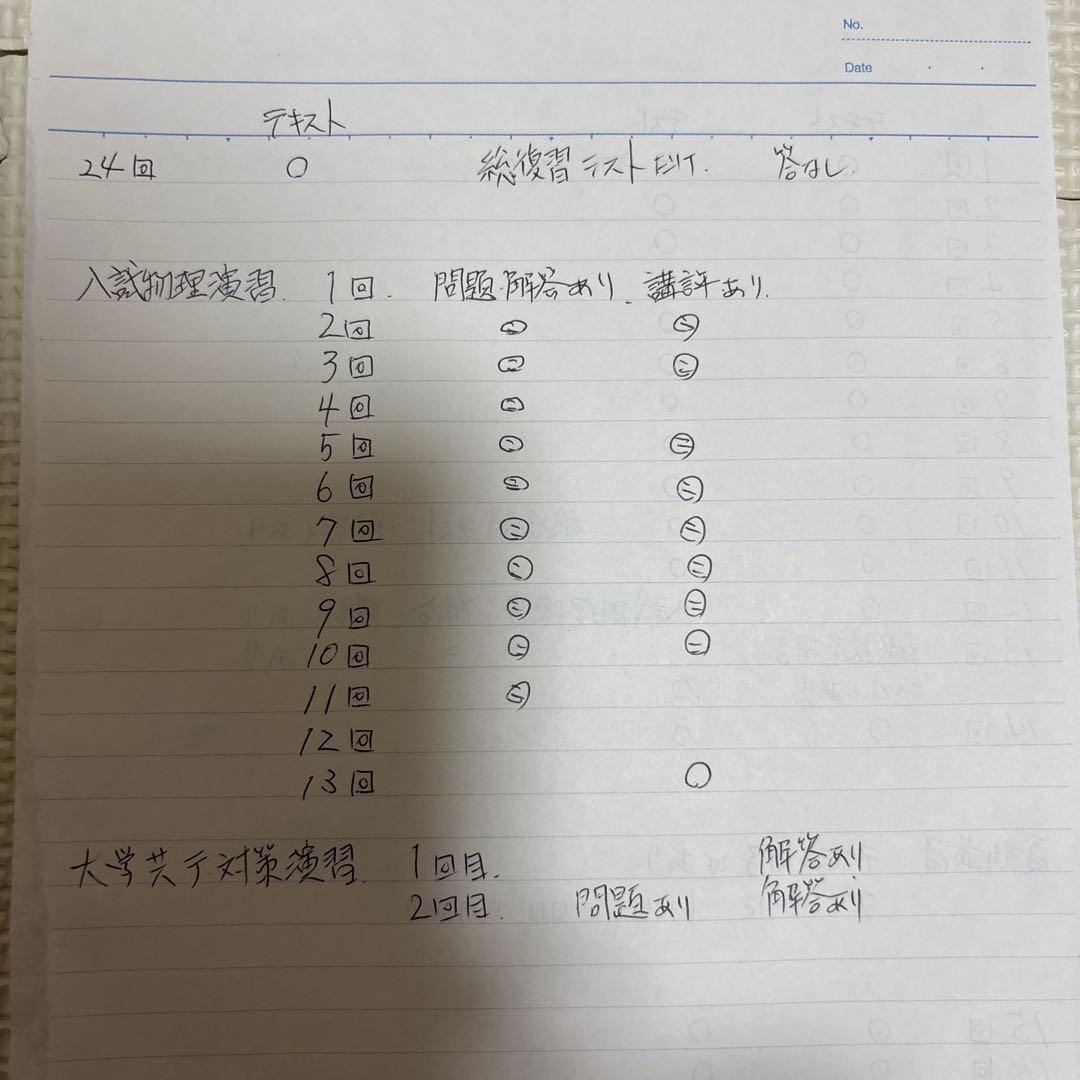 No.
Date
テキスト
24回 ○ 総復習テストだけ. 答なし.
入試物理演習. 1回. 問題・解答あり. 講評あり.
2回 〃 〃
3回 〃 〃
4回 〃
5回 〃 〃
6回 〃 〃
7回 〃 〃
8回 〃 〃
9回 〃 〃
10回 〃 〃
11回 〃
12回
13回 ○
大学共テ対策演習. 1回目. 解答あり
2回目. 問題あり 解答あり